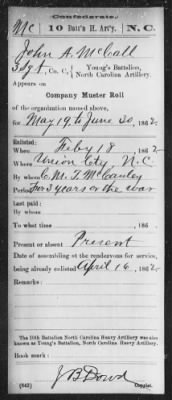 Confederate.
Mc 10 Batt'n H. Art'y. N. C.
John A. McCall
Co. C, Young's Battalion, North Carolina Artillery.
Appears on
Company Muster Roll
of the organization named above,
for May 19 to June 30, 1862
Enlisted:
When Feby 18, 1862
Where Union Cty, N.C.
By whom C. M. T. McCauley
Period For 3 years or the war
Last paid:
By whom
To what time , 186
Present or absent Present
Date of assembling at the rendezvous for service,
being already enlisted April 16, 1862
Remarks:
The 10th Battalion North Carolina Heavy Artillery was also
known as Young's Battalion, North Carolina Artillery.
Book mark:
J B Dowd
(642) Copyist.